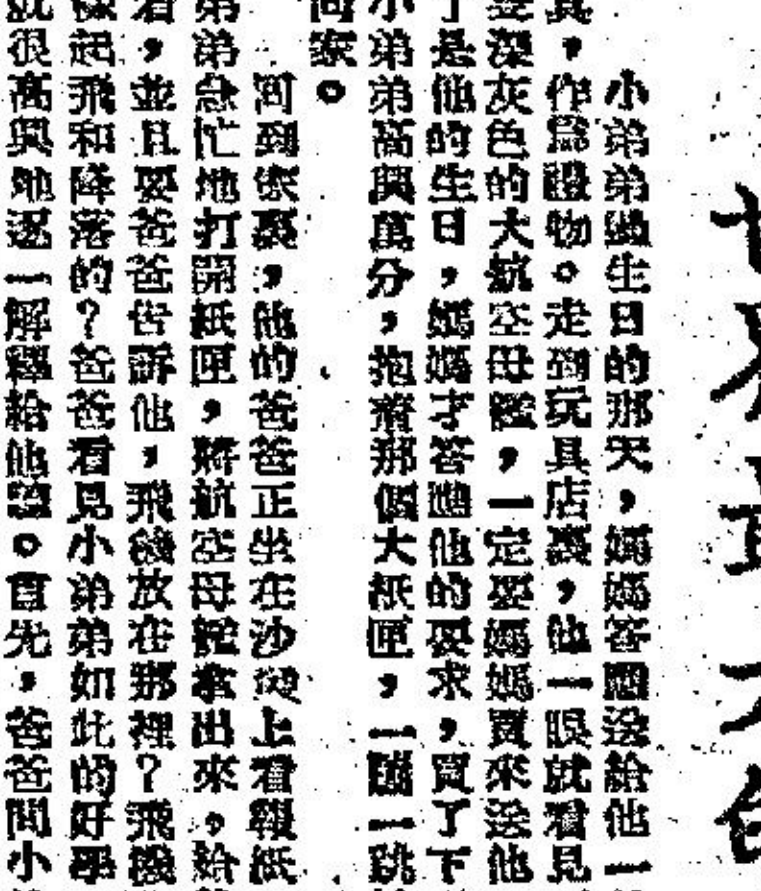 小弟弟過生日的那天，媽媽答應送給他一
具，作為禮物。走到玩具店裏，他一眼就看見
深灰色的大航空母艦，一定要媽媽買來送他
了是他的生日，媽媽才答應他的要求，買了下
小弟弟高興萬分，抱着那個大紙匣，一蹦一跳
家。
回到家裏，他的爸爸正坐在沙發上看報紙
弟弟急忙地打開紙匣，將航空母艦拿出來，給
看，並且要爸爸告訴他，飛機放在那裡？飛機
樣起飛和降落的？爸爸看見小弟弟如此的好學
就很高興地逐一解釋給他聽。首先，爸爸問小